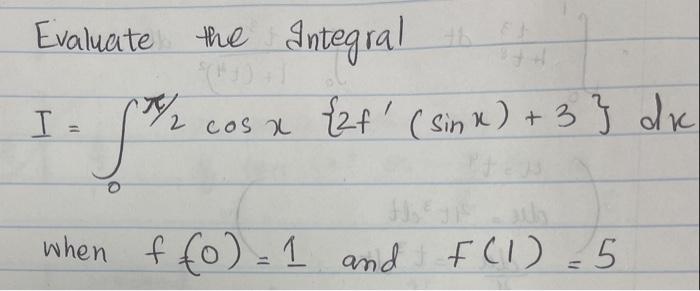 Evaluate the Integral
I = ∫₀^{π/2} cos x {2f' (sin x) + 3} dx
when f(0) = 1 and f(1) = 5